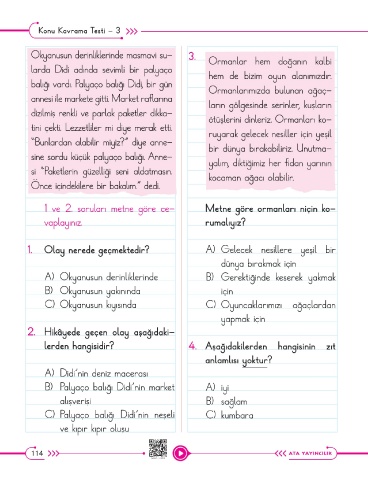 Konu Kavrama Testi - 3
Okyanusun derinliklerinde masmavi su-
larda Didi adında sevimli bir palyaço
balığı vardı. Palyaço balığı Didi, bir gün
annesi ile markete gitti. Market raflarına
dizilmiş renkli ve parlak paketler dikka-
tini çekti. Lezzetliler mi diye merak etti.
"Bunlardan alabilir miyiz?" diye anne-
sine sordu küçük palyaço balığı. Anne-
si "Paketlerin güzelliği seni aldatmasın.
Önce içindekilere bir bakalım." dedi.
1 ve 2. soruları metne göre ce-
vaplayınız.
1. Olay nerede geçmektedir?
A) Okyanusun derinliklerinde
B) Okyanusun yakınında
C) Okyanusun kıyısında
2. Hikâyede geçen olay aşağıdaki-
lerden hangisidir?
A) Didi'nin deniz macerası
B) Palyaço balığı Didi'nin market
alışverişi
C) Palyaço balığı Didi'nin neşeli
ve kıpır kıpır oluşu
3.
Ormanlar hem doğanın kalbi
hem de bizim oyun alanımızdır.
Ormanlarımızda bulunan ağaç-
ların gölgesinde serinler, kuşların
ötüşlerini dinleriz. Ormanları ko-
ruyarak gelecek nesiller için yeşil
bir dünya bırakabiliriz. Unutma-
yalım, diktiğimiz her fidan yarının
kocaman ağacı olabilir.
Metne göre ormanları niçin ko-
rumalıyız?
A) Gelecek nesillere yeşil bir
dünya bırakmak için
B) Gerektiğinde keserek yakmak
için
C) Oyuncaklarımızı ağaçlardan
yapmak için
4. Aşağıdakilerden hangisinin zıt
anlamlısı yoktur?
A) iyi
B) sağlam
C) kumbara
114
ATA YAYINCILIK